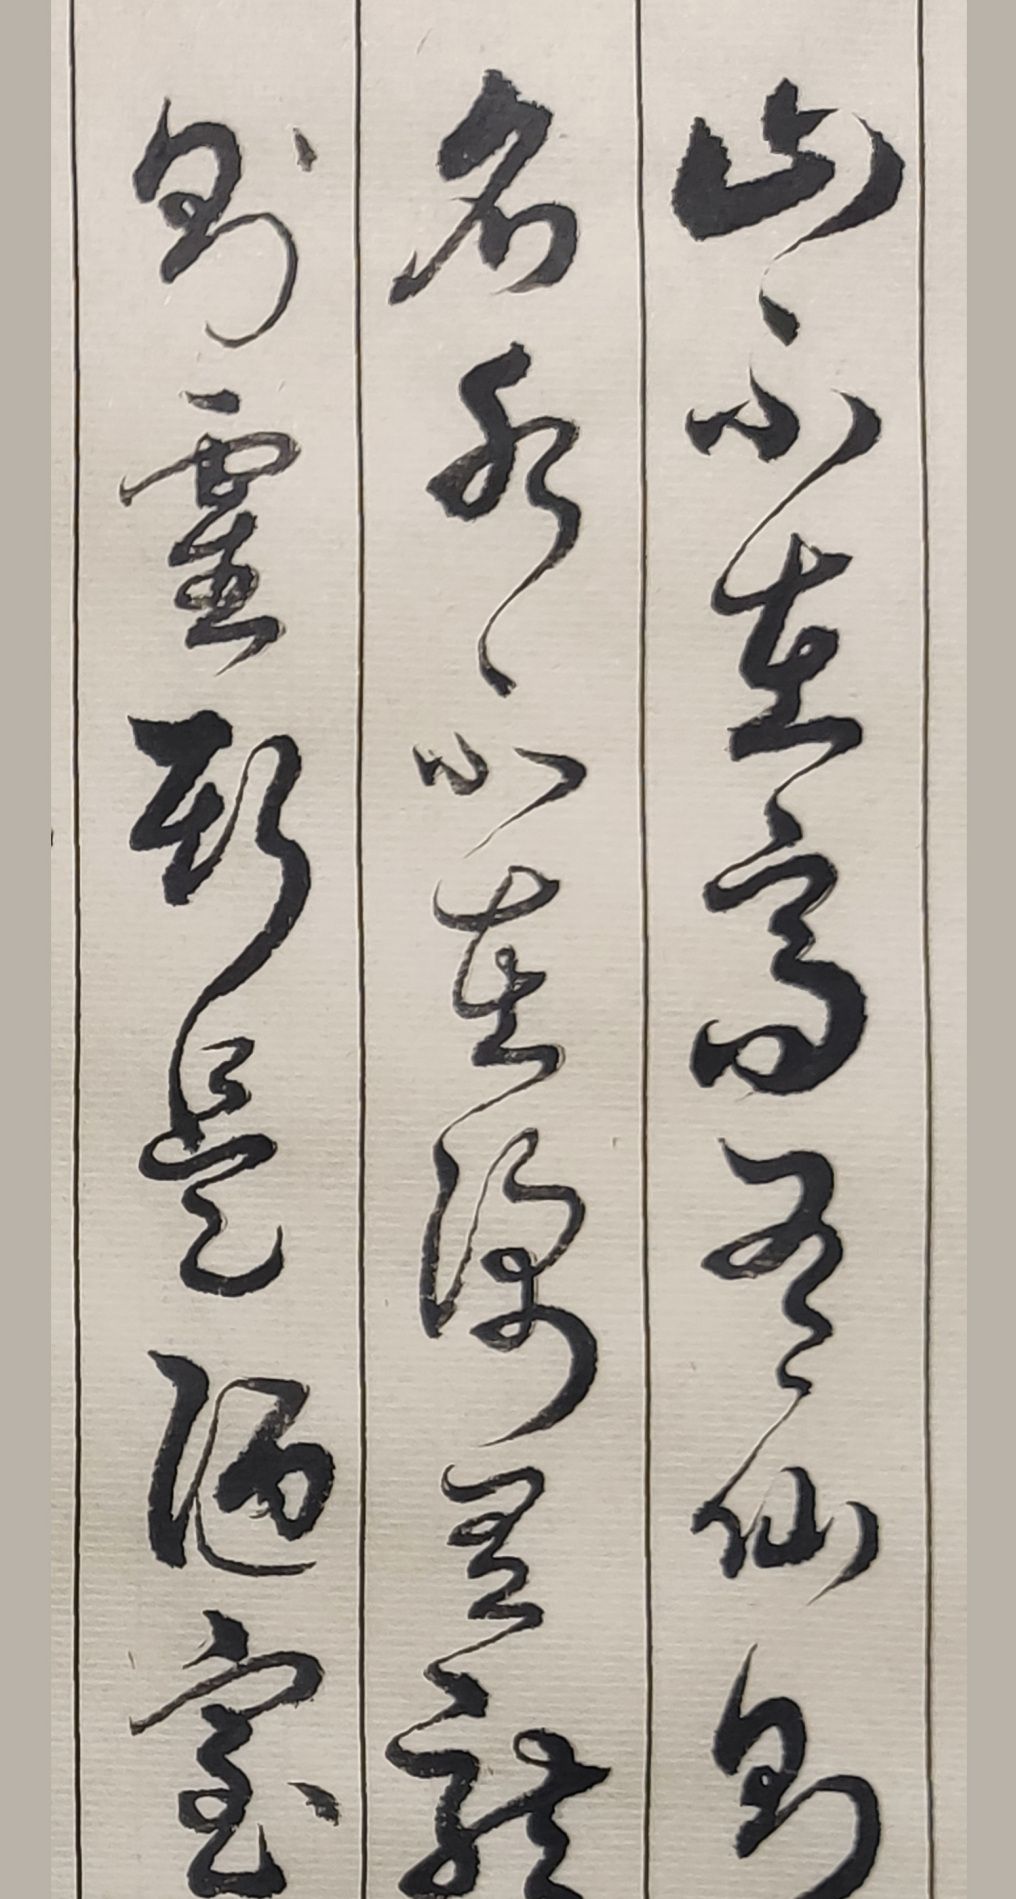 山不在高有仙則
名水不在深有龍
則靈斯是陋室